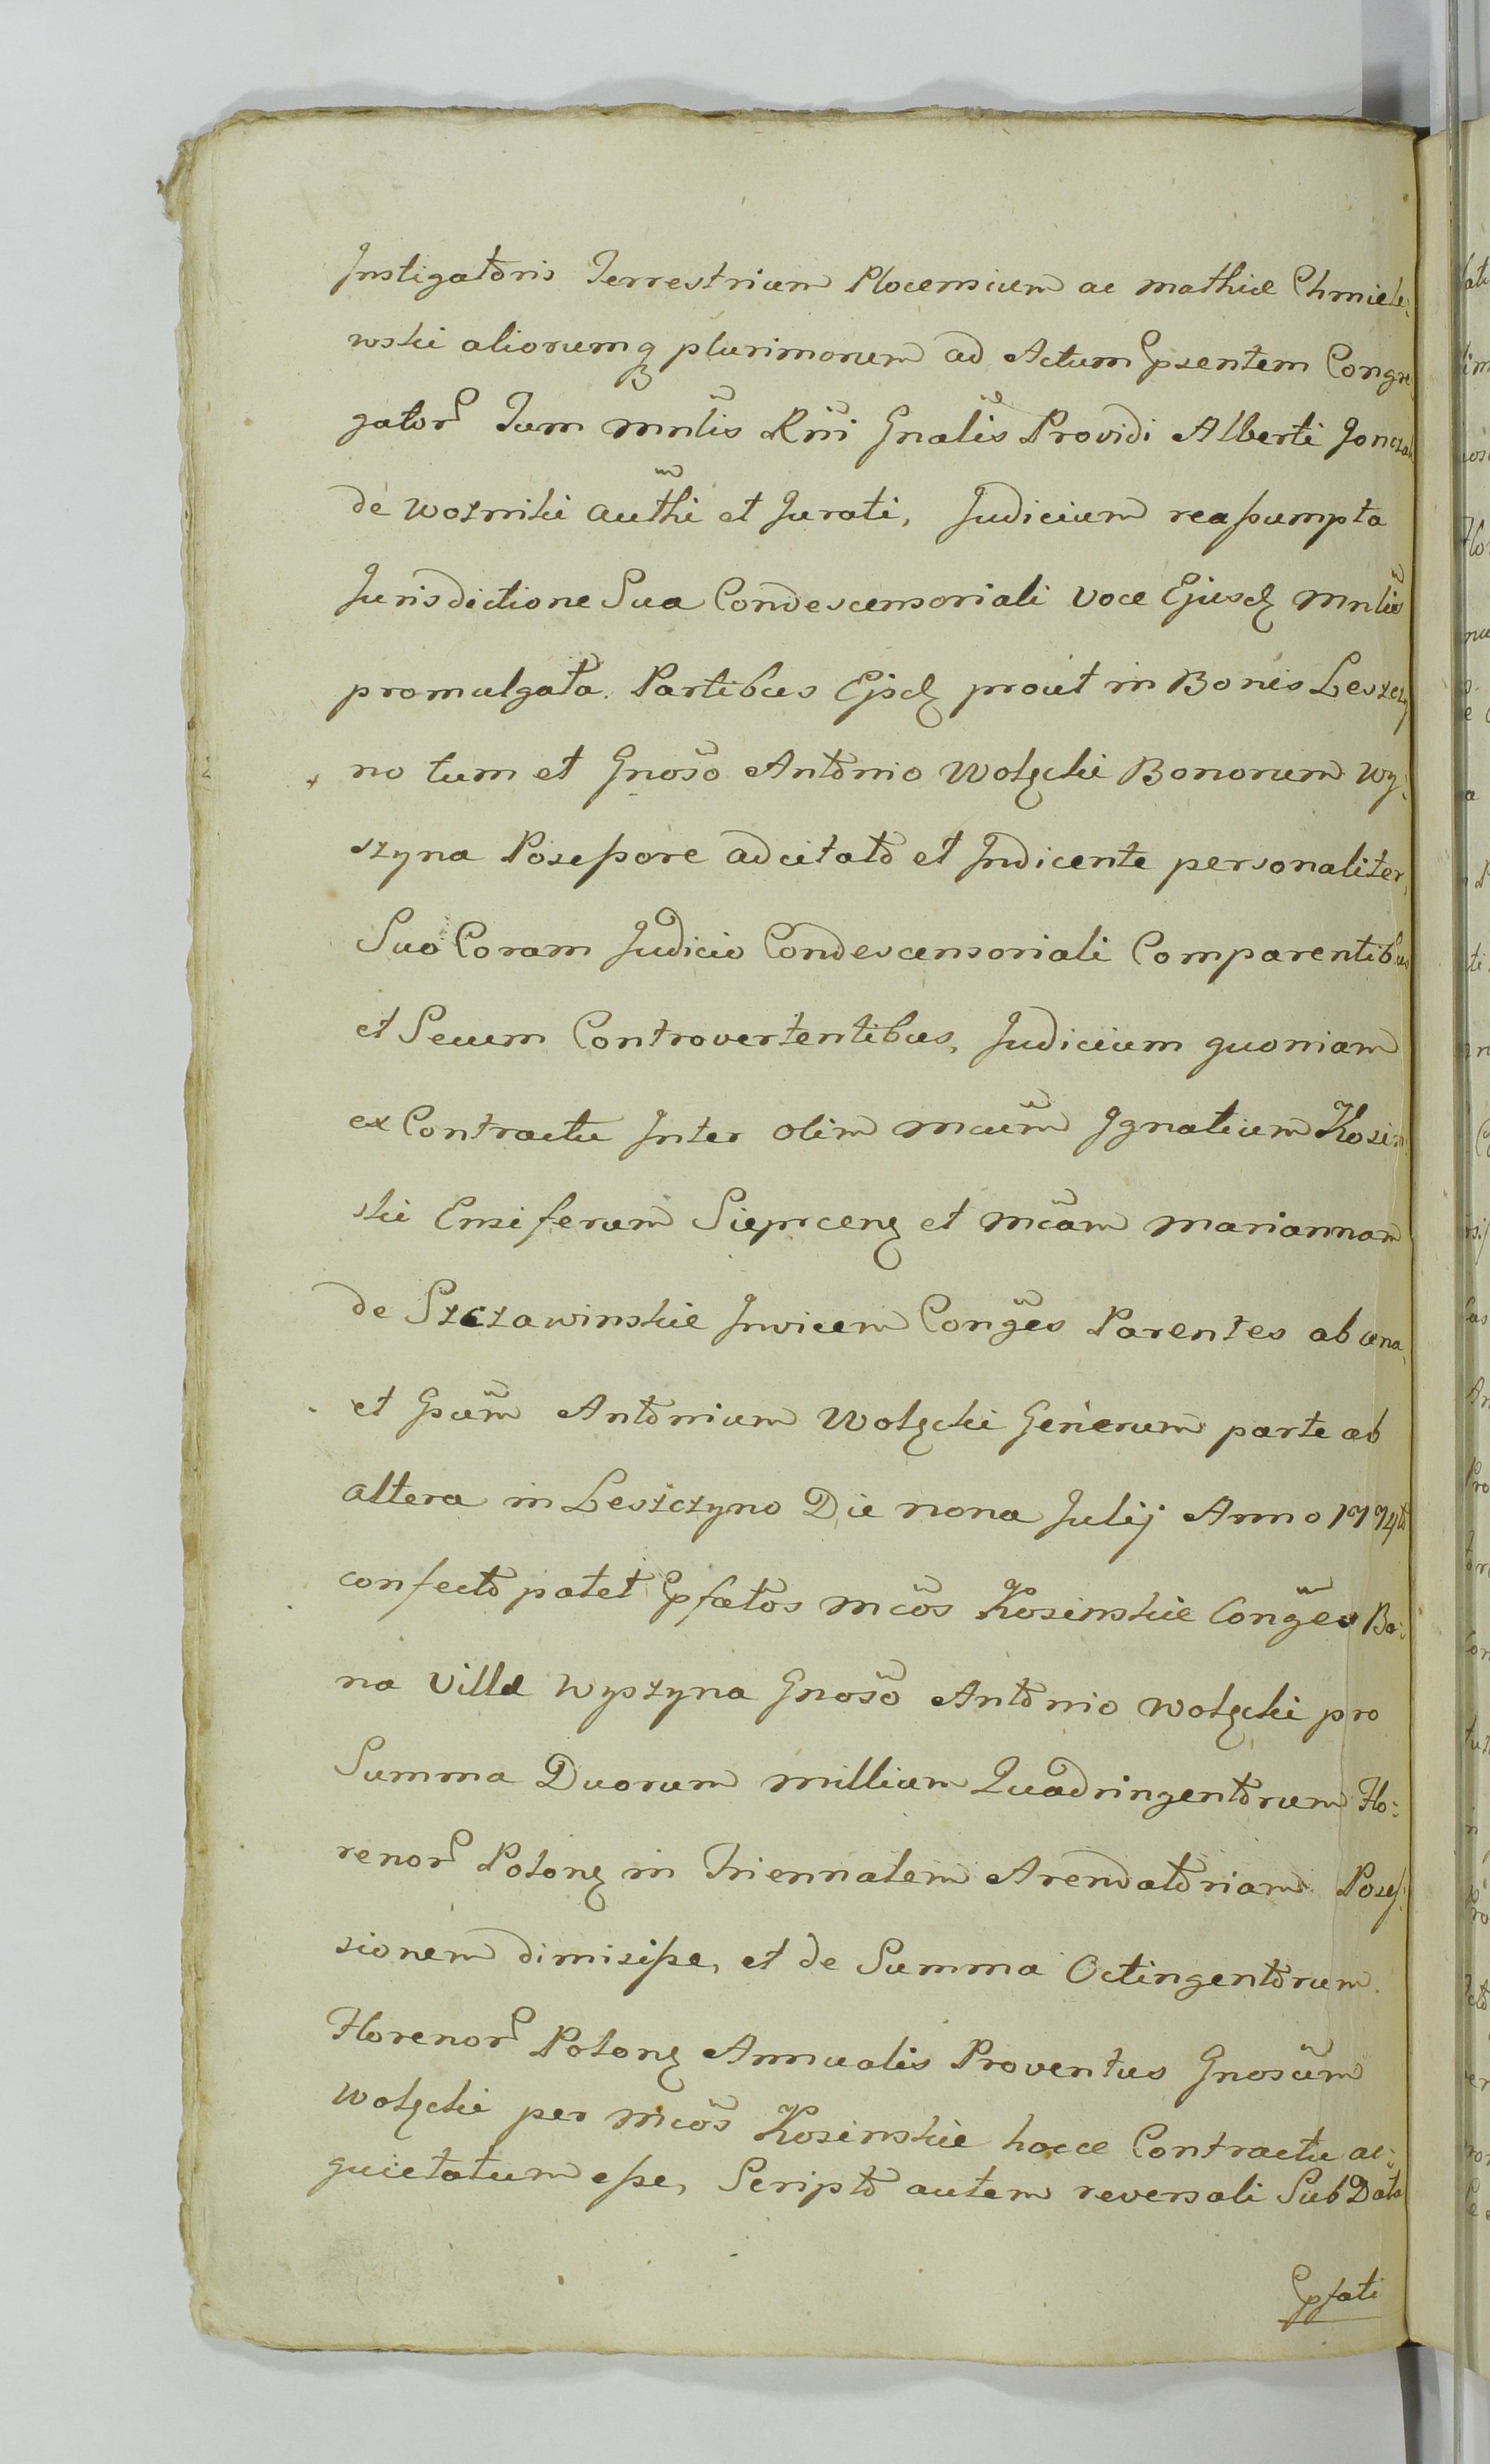 Instigatoris Terrestrium Plocensium ac Mathiæ Chmiele:
wski aliorumq plurimorum ad Actum pæsentem Congre:
gator Tum Mnlis Rni Gnalis Providi Alberti Joncza
de Wozniki authi et Jurati, Judicium reassumpta
Jurisdictione Sua Condescensoriali voce Ejusd Mnlis
promulgata. Partibus Ejsd prout in Bonis Leszczy
no tum et Gnoso Antonio Wolęcki Bonorum Wy:
szyna Posessore adcitato et Indicente personaliter,
Suo Coram Judicio Condescensoriali Comparentibus
et Secum Controvertentibus, Judicium quoniam
ex Contractu Inter olim Mcum Ignatium Kosin
ski Ensiferum Sieprcen et Mcam Mariannam
de Szczawinskie Invicem Conges Parentes ab una,
et Gsum Antonium Wolęcki Generum parte ab
altera in Leszczyno Die nona Julij Anno 1774to
confecto patet pfatos Mcos Kosinskie Conges Bo:
na Villæ Wyszyna Gnoso Antonio Wolęcki pro
Summa Duorum millium Quadringentorum Flo:
renor Polon in Triennalem Arendatoriam Poses:
sionem dimisisse, et de Summa Octingentorum
Florenor Polon Annualis Proventus Gnosum
Wolęcki per Mcos Kosinskie hocce Contractu ac:
quietatum esse, Scripto autem reversali Sub Data
pfati